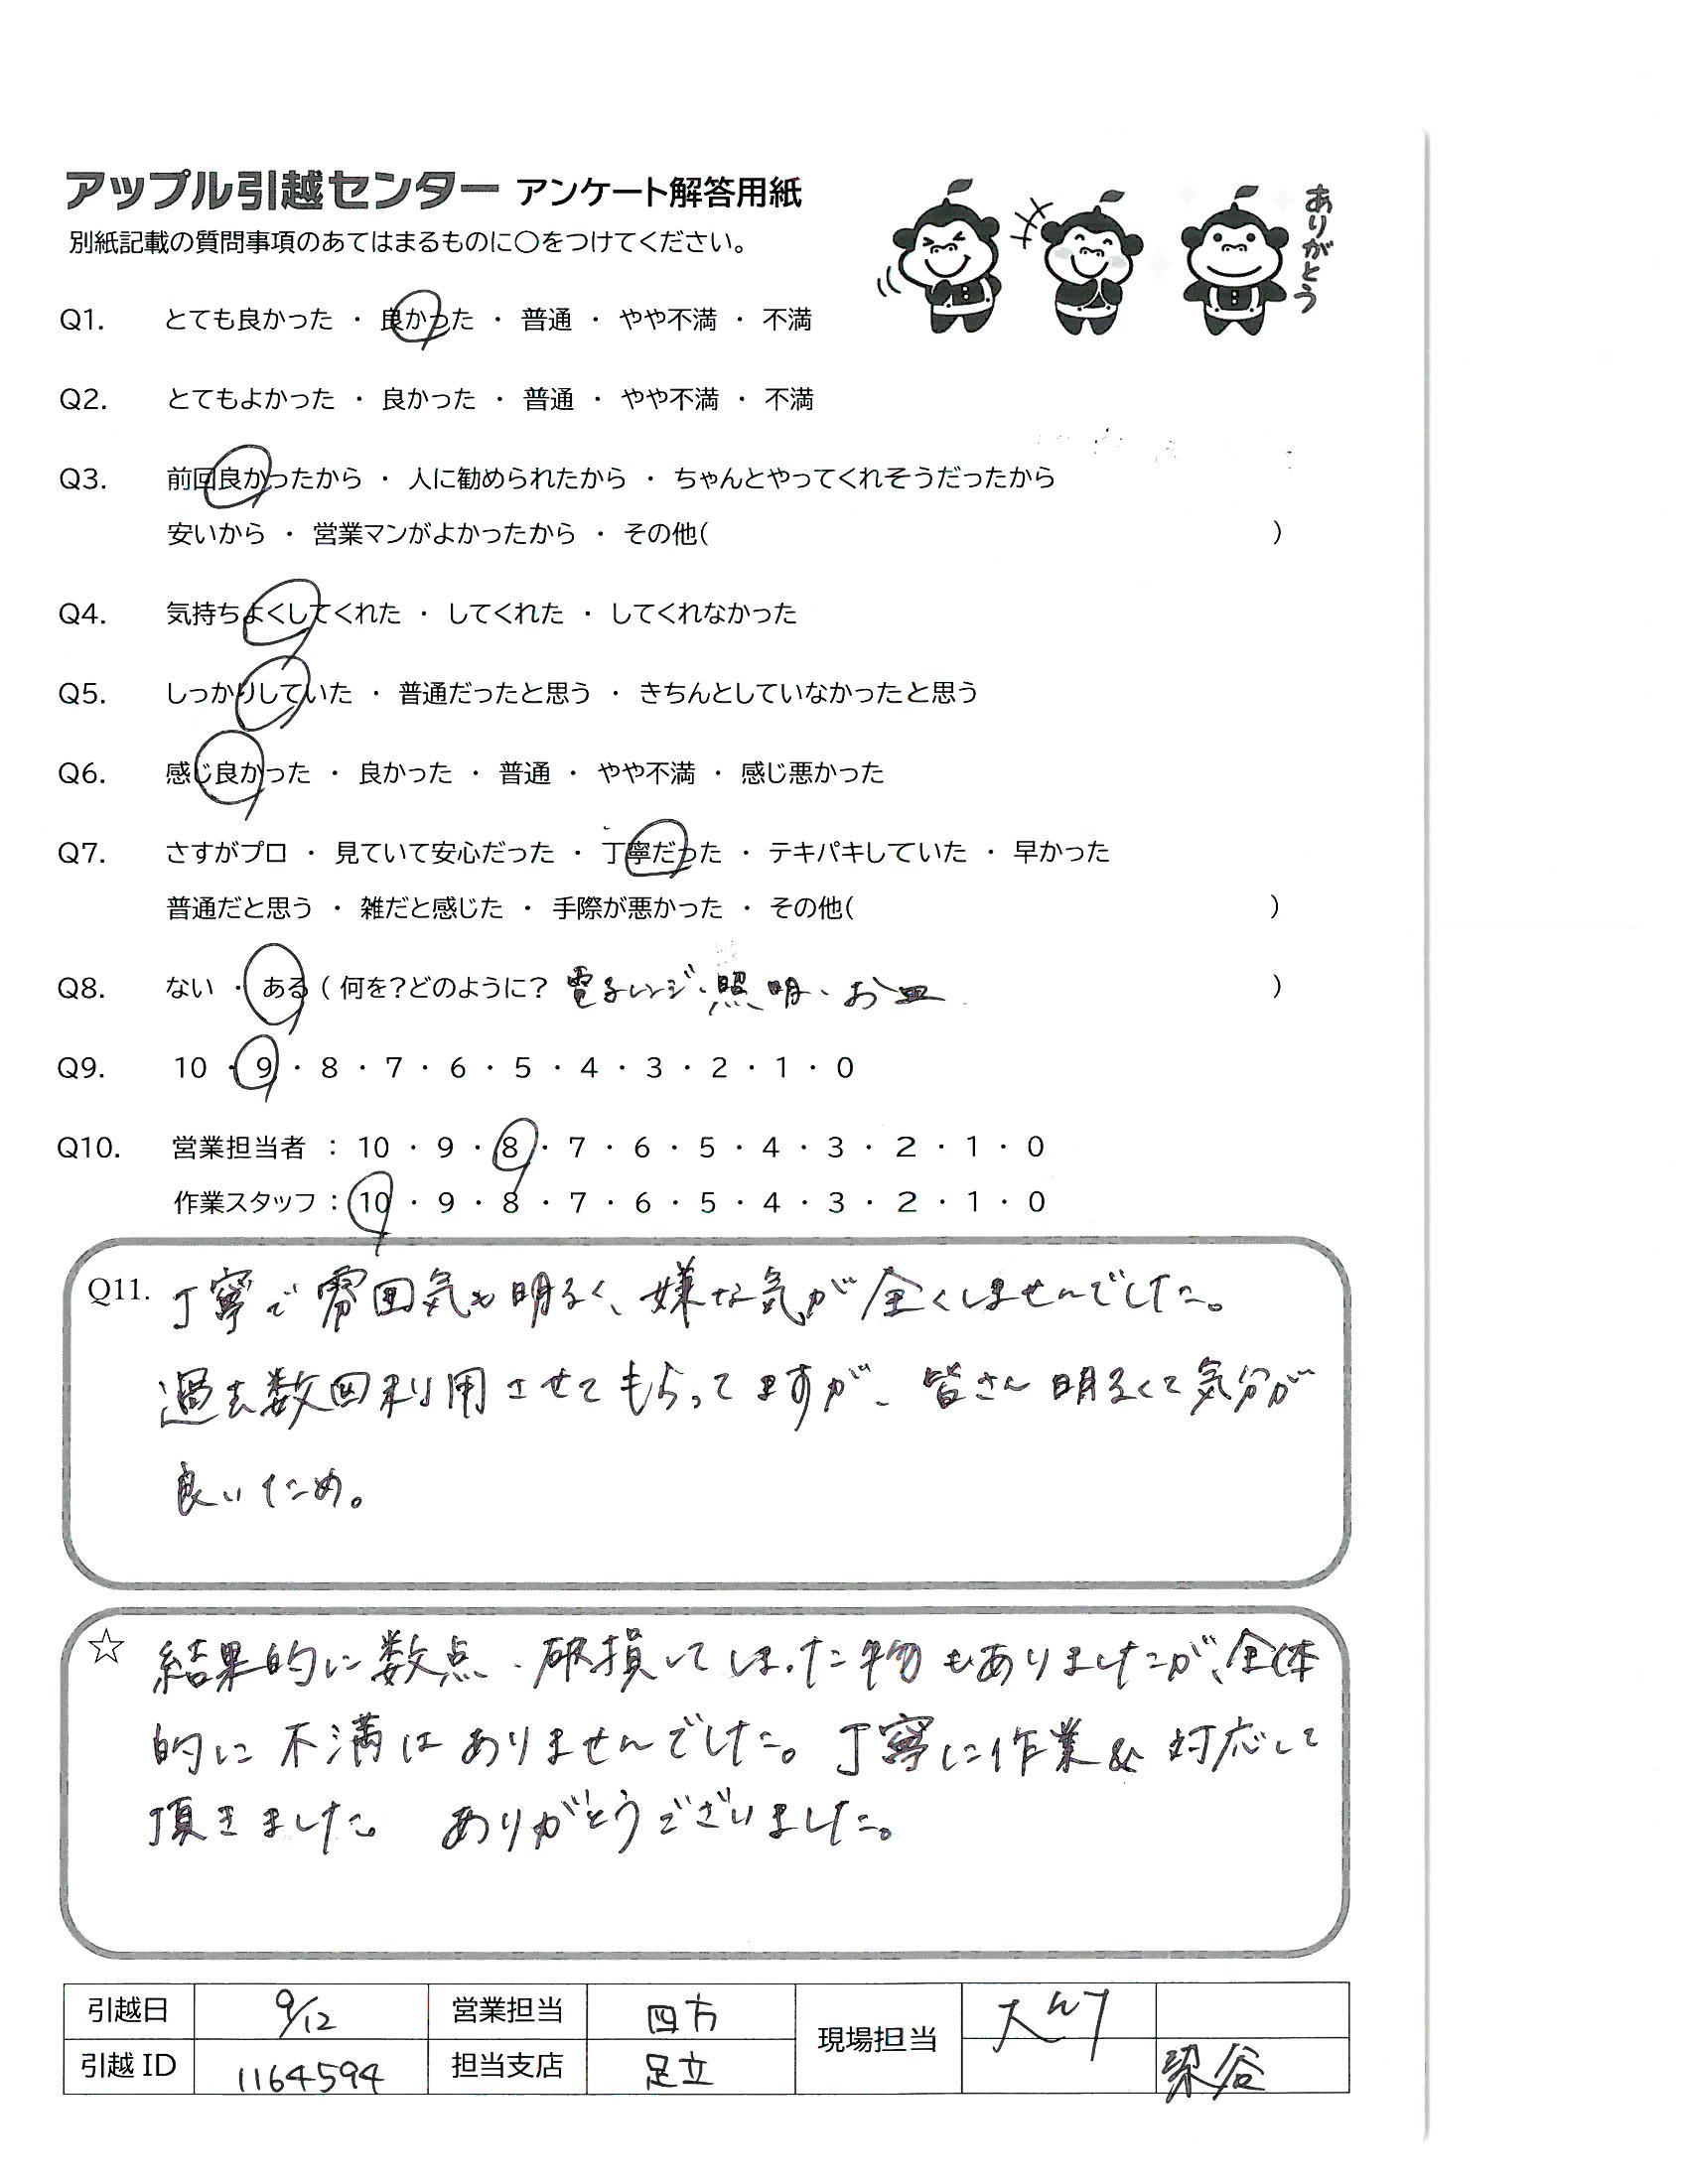 アップル引越センター アンケート解答用紙
ありがとう
別紙記載の質問事項のあてはまるものに○をつけてください。
Q1. とても良かった ・ 良かった ・ 普通 ・ やや不満 ・ 不満
Q2. とてもよかった ・ 良かった ・ 普通 ・ やや不満 ・ 不満
Q3. 前回良かったから ・ 人に勧められたから ・ ちゃんとやってくれそうだったから
安いから ・ 営業マンがよかったから ・ その他( )
Q4. 気持ちよくしてくれた ・ してくれた ・ してくれなかった
Q5. しっかりしていた ・ 普通だったと思う ・ きちんとしていなかったと思う
Q6. 感じ良かった ・ 良かった ・ 普通 ・ やや不満 ・ 感じ悪かった
Q7. さすがプロ ・ 見ていて安心だった ・ 丁寧だった ・ テキパキしていた ・ 早かった
普通だと思う ・ 雑だと感じた ・ 手際が悪かった ・ その他( )
Q8. ない ・ ある ( 何を?どのように? 電子レンジ・照明・お皿 )
Q9. 10 ・ 9 ・ 8 ・ 7 ・ 6 ・ 5 ・ 4 ・ 3 ・ 2 ・ 1 ・ 0
Q10. 営業担当者 : 10 ・ 9 ・ 8 ・ 7 ・ 6 ・ 5 ・ 4 ・ 3 ・ 2 ・ 1 ・ 0
作業スタッフ : 10 ・ 9 ・ 8 ・ 7 ・ 6 ・ 5 ・ 4 ・ 3 ・ 2 ・ 1 ・ 0
Q11. 丁寧で雰囲気も明るく、嫌な気が全くしませんでした。
過去数回利用させてもらってますが、皆さん明るくて気分が
良いため。
☆ 結果的に数点、破損してしまった物もありましたが、全体
的に不満はありませんでした。丁寧に作業&対応して
頂きました。 ありがとうございました。
引越日 9/12 営業担当 四方 現場担当
引越 ID 1164594 担当支店 足立 染谷